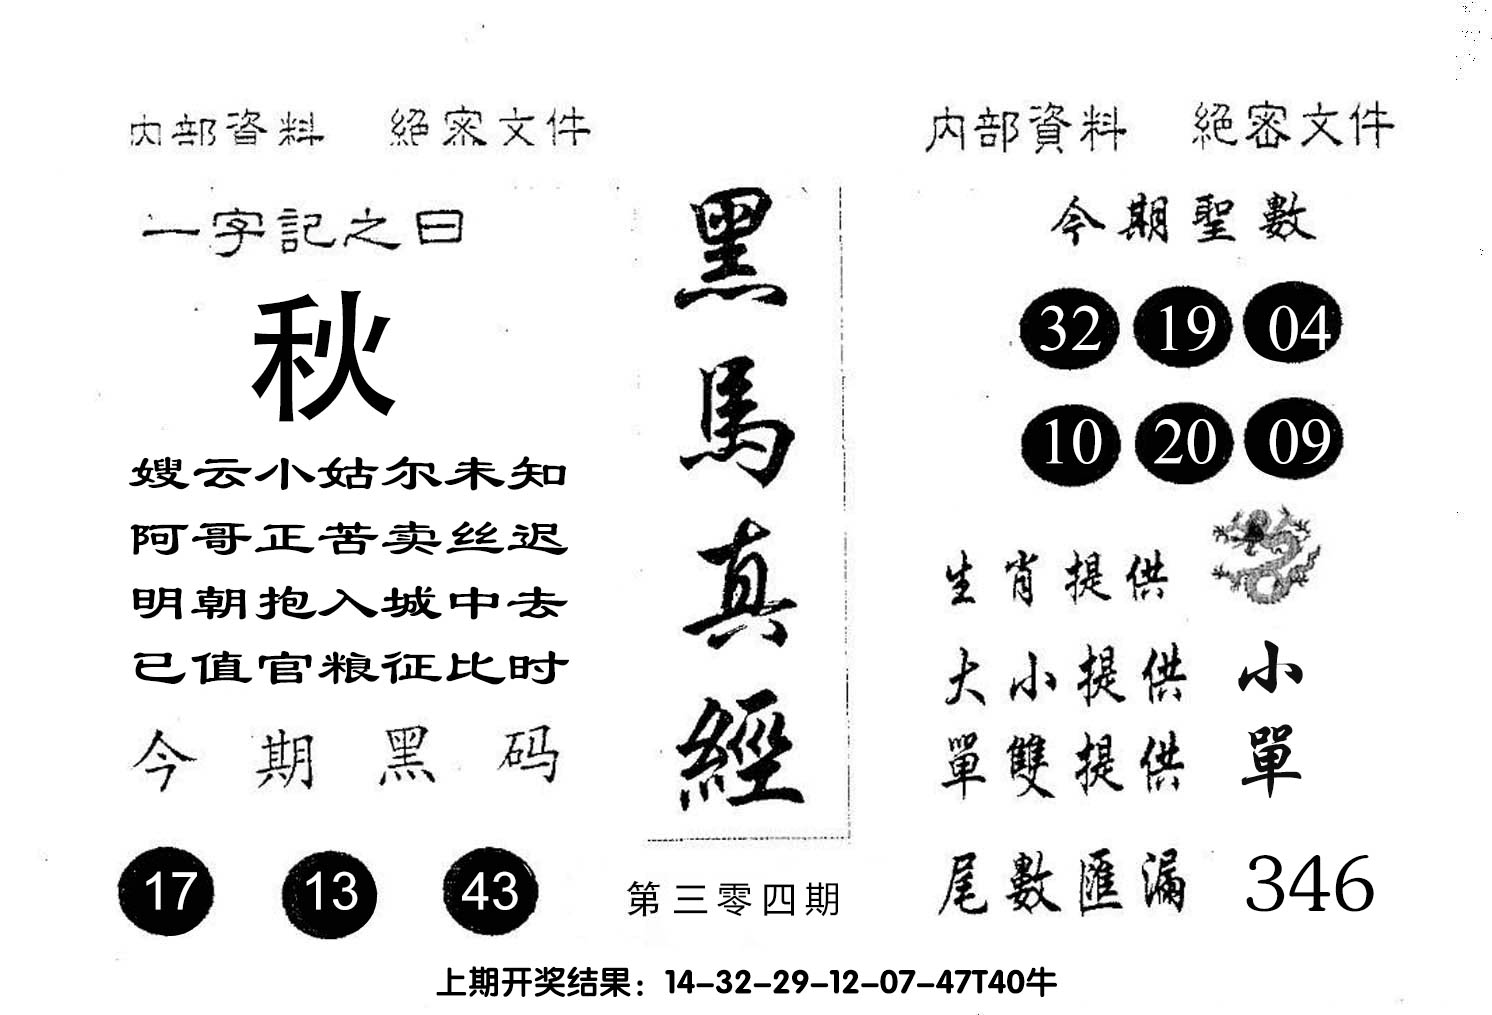 内部資料　絕密文件
一字記之曰
秋
嫂云小姑尔未知
阿哥正苦卖丝迟
明朝抱入城中去
已值官粮征比时
今期黑码
17 13 43
黑馬真經
第三零四期
内部資料　絕密文件
今期聖數
32 19 04
10 20 09
生肖提供
大小提供 小
單雙提供 單
尾數匯漏 346
上期开奖结果：14-32-29-12-07-47T40牛